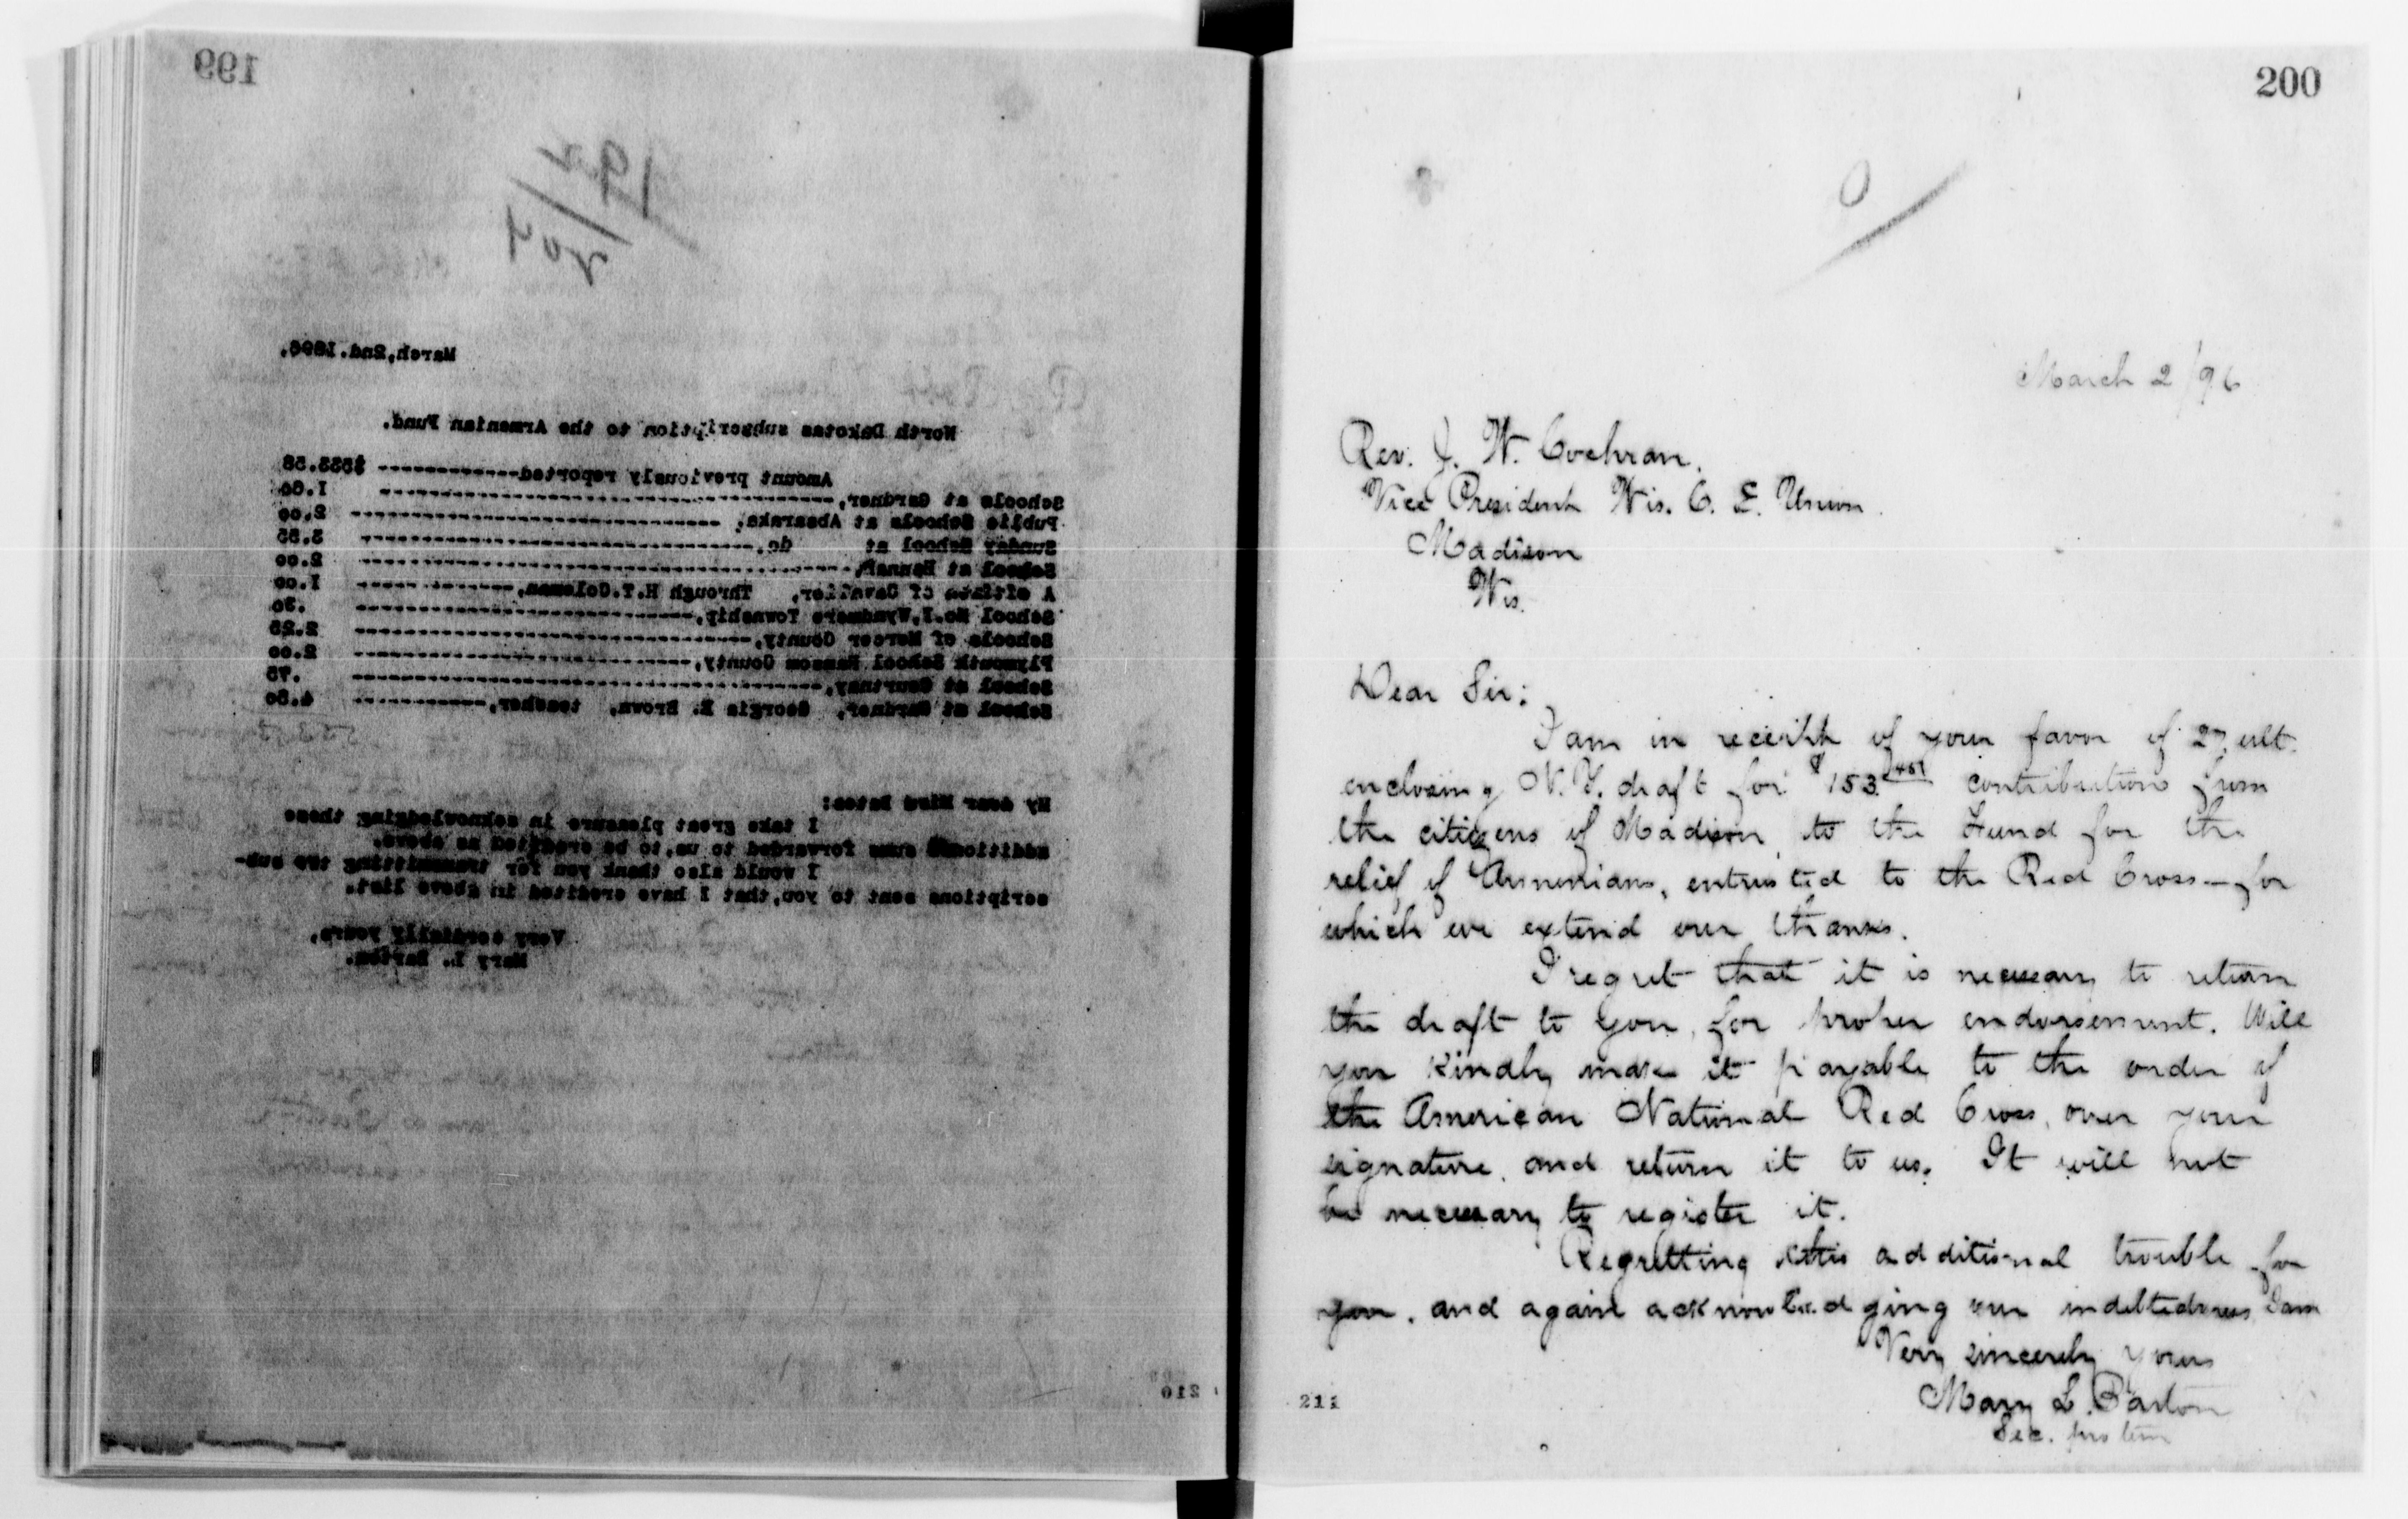 199
March,2nd.1896.
North Dakotas subscription to the Armenian Fund.
Amount previously reported------------- $533.58
Schools at Gardner,------------------------------
Public Schools at Absaraka, ------------------------------ 2.00
Sunday School at do.------------------------------
School at Hannah------------------------------ 2.00
A citizen of Cavalier, Through H.T.Coleman,------------ 1.00
School No.1,Wyndmere Township,------------------------------
Schools of Mercer County,------------------------------ 2.25
Plymouth School Ransom County,------------------------------ 2.00
School at Courtnay,------------------------------ .75
School at Gardner, Georgia E. Brown, teacher,------------
My dear Miss Bates:
I take great pleasure in acknowledging these
additional sums forwarded to us,to be credited as above.
I would also thank you for transmitting the sub-
scriptions sent to you,that I have credited in above list.
Very cordially yours,
Mary L. Barton.
210
200
0
March 2/96
Rev. J. W. Cochran.
Vice President Wis. C. E. Union.
Madison
Wis.
Dear Sir:
I am in receipt of your favor of 27 ult.
enclosing N.Y. draft for $153 contributions from
the citizens of Madison, to the Fund for the
relief of Armenians, entrusted to the Red Cross - for
which we extend our thanks.
I regret that it is necessary to return
the draft to you, for proper endorsement. Will
you kindly make it payable to the order of
the American National Red Cross, over your
signature, and return it to us. It will not
be necessary to register it.
Regretting this additional trouble for
you, and again acknowledging our indebtedness, I am
Very sincerely yours
Mary L. Barton
Sec. pro tem
211